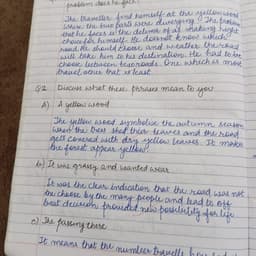 problem does he face?
The traveller find himself at the yellow wood
where the two paths were diverging. The problem
that he faces is the delima of making right
choice for himself. He doesnot know which
road he should choose and weather the road
will take him to his destination. He had to
choose between two roads. One which is most
travel other that is least.
Q2 Discuss what these phrases mean to you
A) A yellow wood
The yellow wood symbolise the autumn season
when the trees shed their leaves and the road
gets covered with dry yellow leaves. It make
the forest appear yellow.
b) It was grassy and wanted wear
It was the clear indication that the road was not
the choose by the many people and lead to
best decision provided new possibility for life
c) The passing there
It means that the number travells